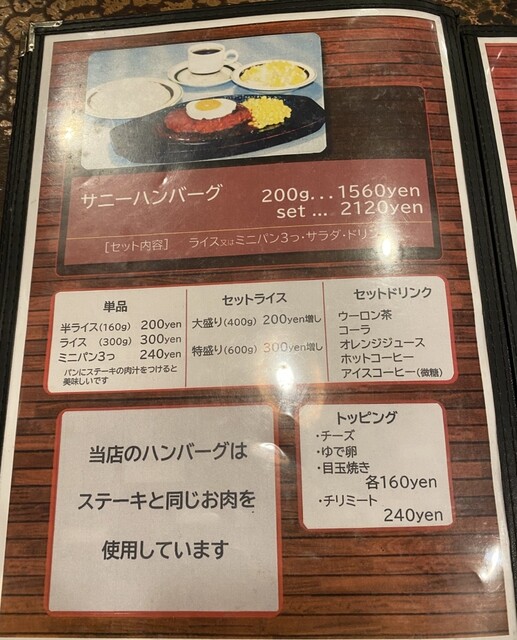 サニーハンバーグ
200g...1560yen
set ... 2120yen
[セット内容] ライス又はミニパン3つ・サラダ・ドリンク
単品
半ライス(160g) 200yen
ライス (300g) 300yen
ミニパン3つ 240yen
パンにステーキの肉汁をつけると
美味しいです
セットライス
大盛り(400g) 200yen増し
特盛り(600g) 300yen増し
セットドリンク
ウーロン茶
コーラ
オレンジジュース
ホットコーヒー
アイスコーヒー(微糖)
当店のハンバーグは
ステーキと同じお肉を
使用しています
トッピング
・チーズ
・ゆで卵
・目玉焼き
各160yen
・チリミート
240yen